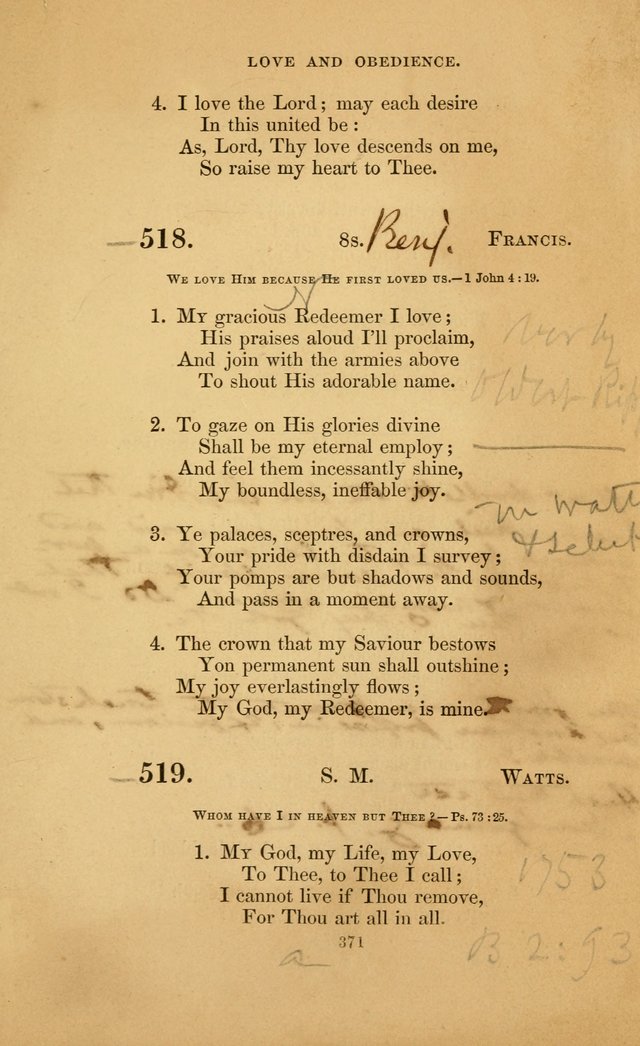 LOVE AND OBEDIENCE.
4. I love the Lord; may each desire
In this united be:
As, Lord, Thy love descends on me,
So raise my heart to Thee.
518. 8s. Benj. FRANCIS.
WE LOVE HIM BECAUSE HE FIRST LOVED US.—1 John 4:19.
N
1. MY gracious Redeemer I love;
His praises aloud I'll proclaim,
And join with the armies above
To shout His adorable name.
2. To gaze on His glories divine
Shall be my eternal employ;
And feel them incessantly shine,
My boundless, ineffable joy.
3. Ye palaces, sceptres, and crowns,
Your pride with disdain I survey;
Your pomps are but shadows and sounds,
And pass in a moment away.
4. The crown that my Saviour bestows
Yon permanent sun shall outshine;
My joy everlastingly flows;
My God, my Redeemer, is mine.
519. S. M. WATTS.
WHOM HAVE I IN HEAVEN BUT THEE?—Ps. 73:25.
1. MY God, my Life, my Love,
To Thee, to Thee I call;
I cannot live if Thou remove,
For Thou art all in all.
1753
371
a B 2:93